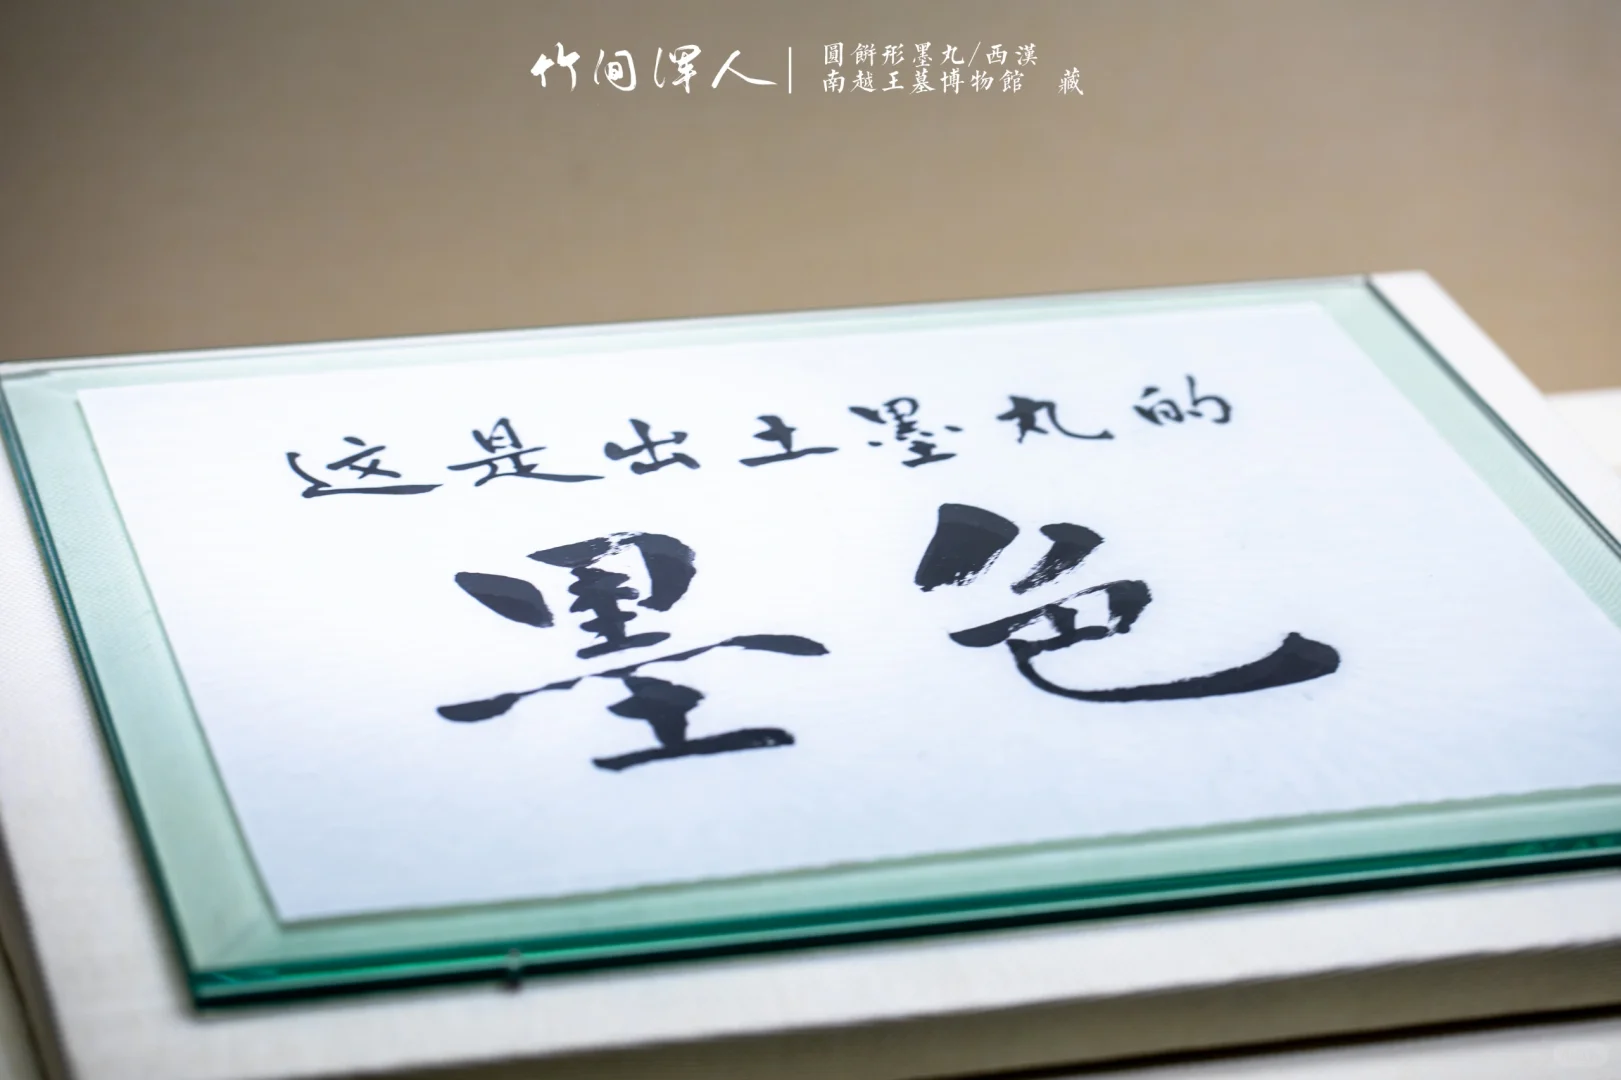 竹间浑人
圓餅形墨丸/西漢
南越王墓博物館 藏
这是出土墨丸的
墨色